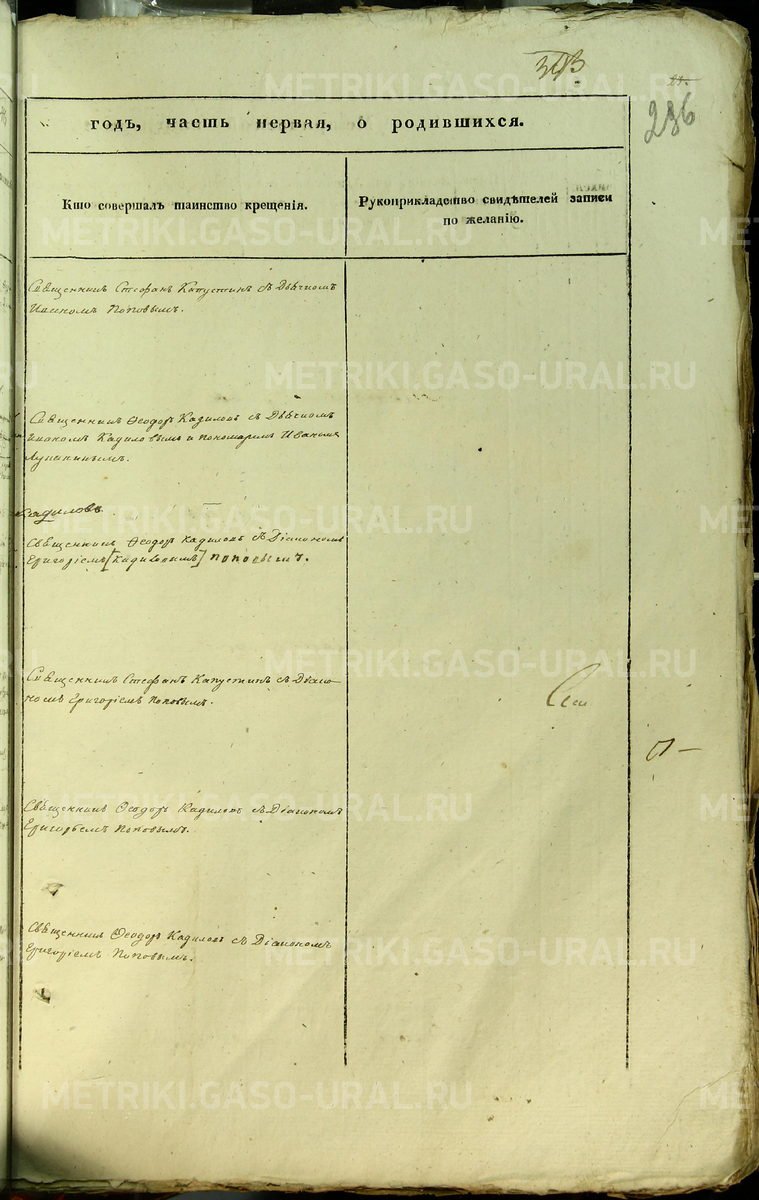 303
21.
236
годъ, часть первая, о родившихся.
Кто совершалъ таинство крещенія.
Рукоприкладство свидѣтелей записи
по желанію.
Священникъ Стефанъ Капустинъ съ Дьячкомъ
Поповымъ.
Священникъ Ѳеодоръ Кадиловъ съ Дьячкомъ
Кадиловымъ и пономаремъ Иваномъ
Кадиловъ
Священникъ Ѳеодоръ Кадиловъ съ Діакономъ
Григоріемъ [Кадиловымъ] Поповымъ.
Священникъ Стефанъ Капустинъ съ Діако-
номъ Григоріемъ Поповымъ.
Священникъ Ѳеодоръ Кадиловъ съ Діакономъ
Григорьемъ Поповымъ.
Священникъ Ѳеодоръ Кадиловъ съ Діакономъ
Григоріемъ Поповымъ.
METRIKI.GASO-URAL.RU